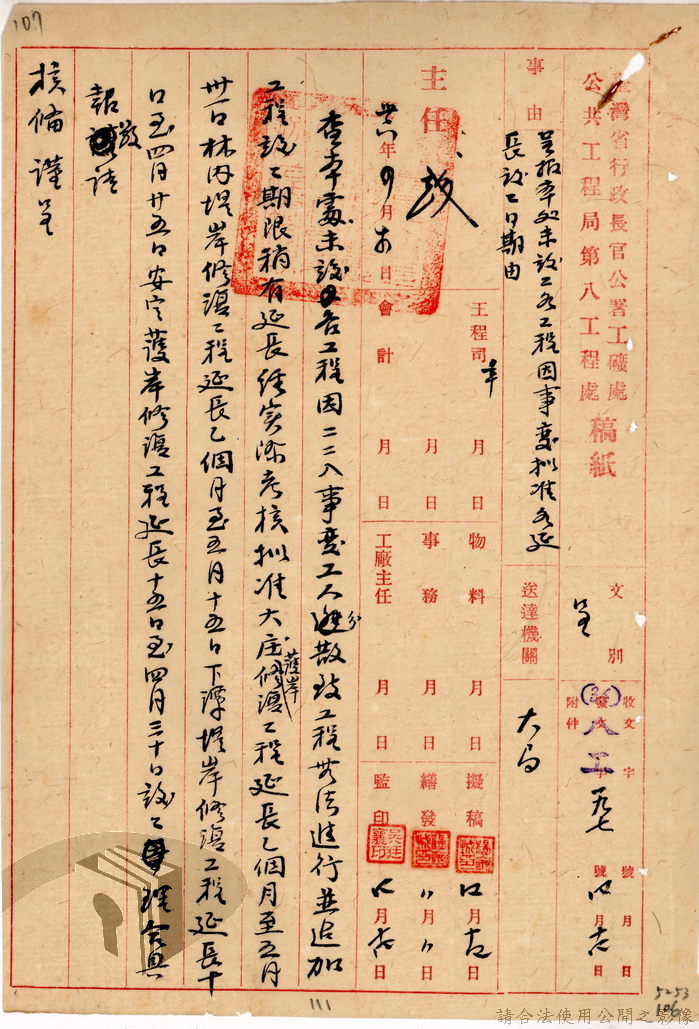 107
臺灣省行政長官公署工礦處
公共工程局第八工程處 稿紙
事由
呈报本處未竣工各工程因事变拟准各延
長竣工日期由
文別
呈
送達機關
大局
收文 字 號 月 日
發文 字 號 月 日
附件
(36)八工 一九七
主任
卅六年四月 日
工程司 月 日
會計 月 日
物料 月 日
事務 月 日
工廠主任 月 日
擬稿 月 日
繕發 月 日
監印 月 日
查本處未竣工各工程因二二八事变工人分散致工程無法進行並追加
工程竣工期限稍有延長経實際考核拟准大庄護岸修復工程延長乙個月至五月
卅一日林内堤岸修復工程延長乙個月至五月十五日下潭堤岸修復工程延長十
日至四月廿五日安定護岸修復工程延長十五日至四月三十日竣工理合具
報敬請
核備謹呈
111
5253
106
請合法使用公開之影像